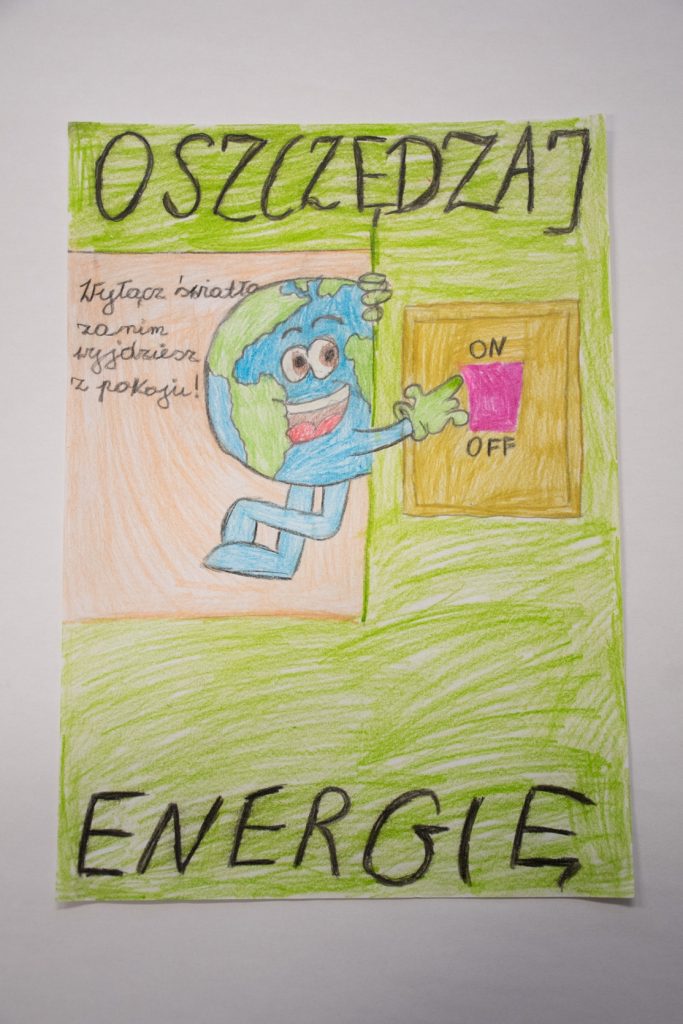 OSZCZĘDZAJ
Wyłącz światło
zanim
wyjdziesz
z pokoju!
ON
OFF
ENERGIĘ